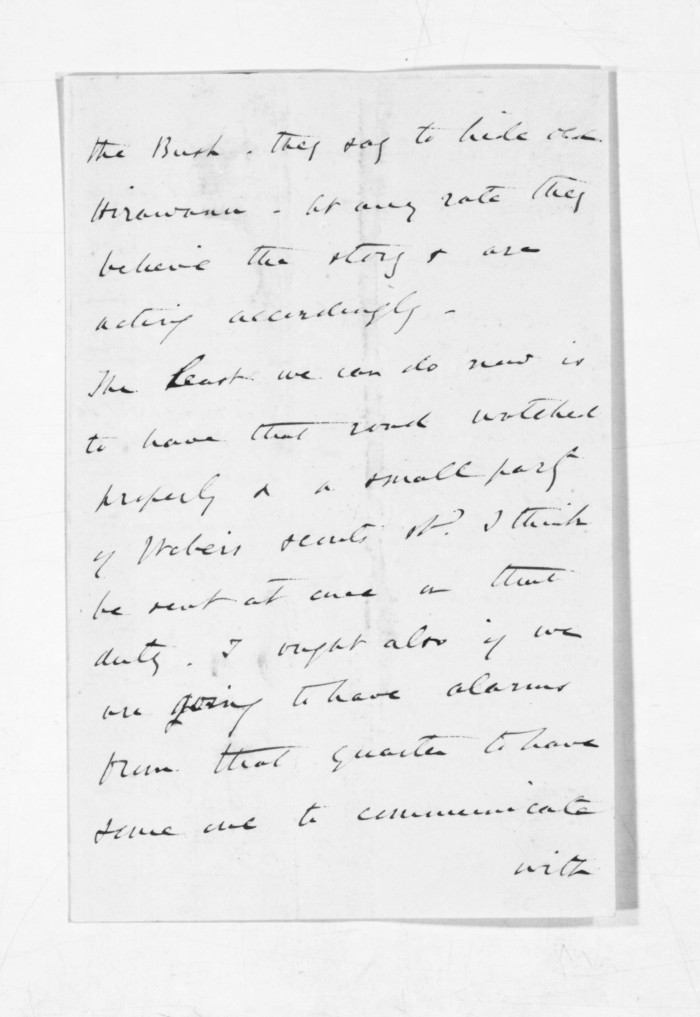 the Bush. they say to hide old
Hirawanu - At any rate they
believe the story & are
acting accordingly -
The Least we can do now is
to have that road watched
properly & a small party
of Webers scouts shd. I think
be sent at once on that
duty. I ought also if we
are going to have alarms
from that quarter to have
some one to communicate
with